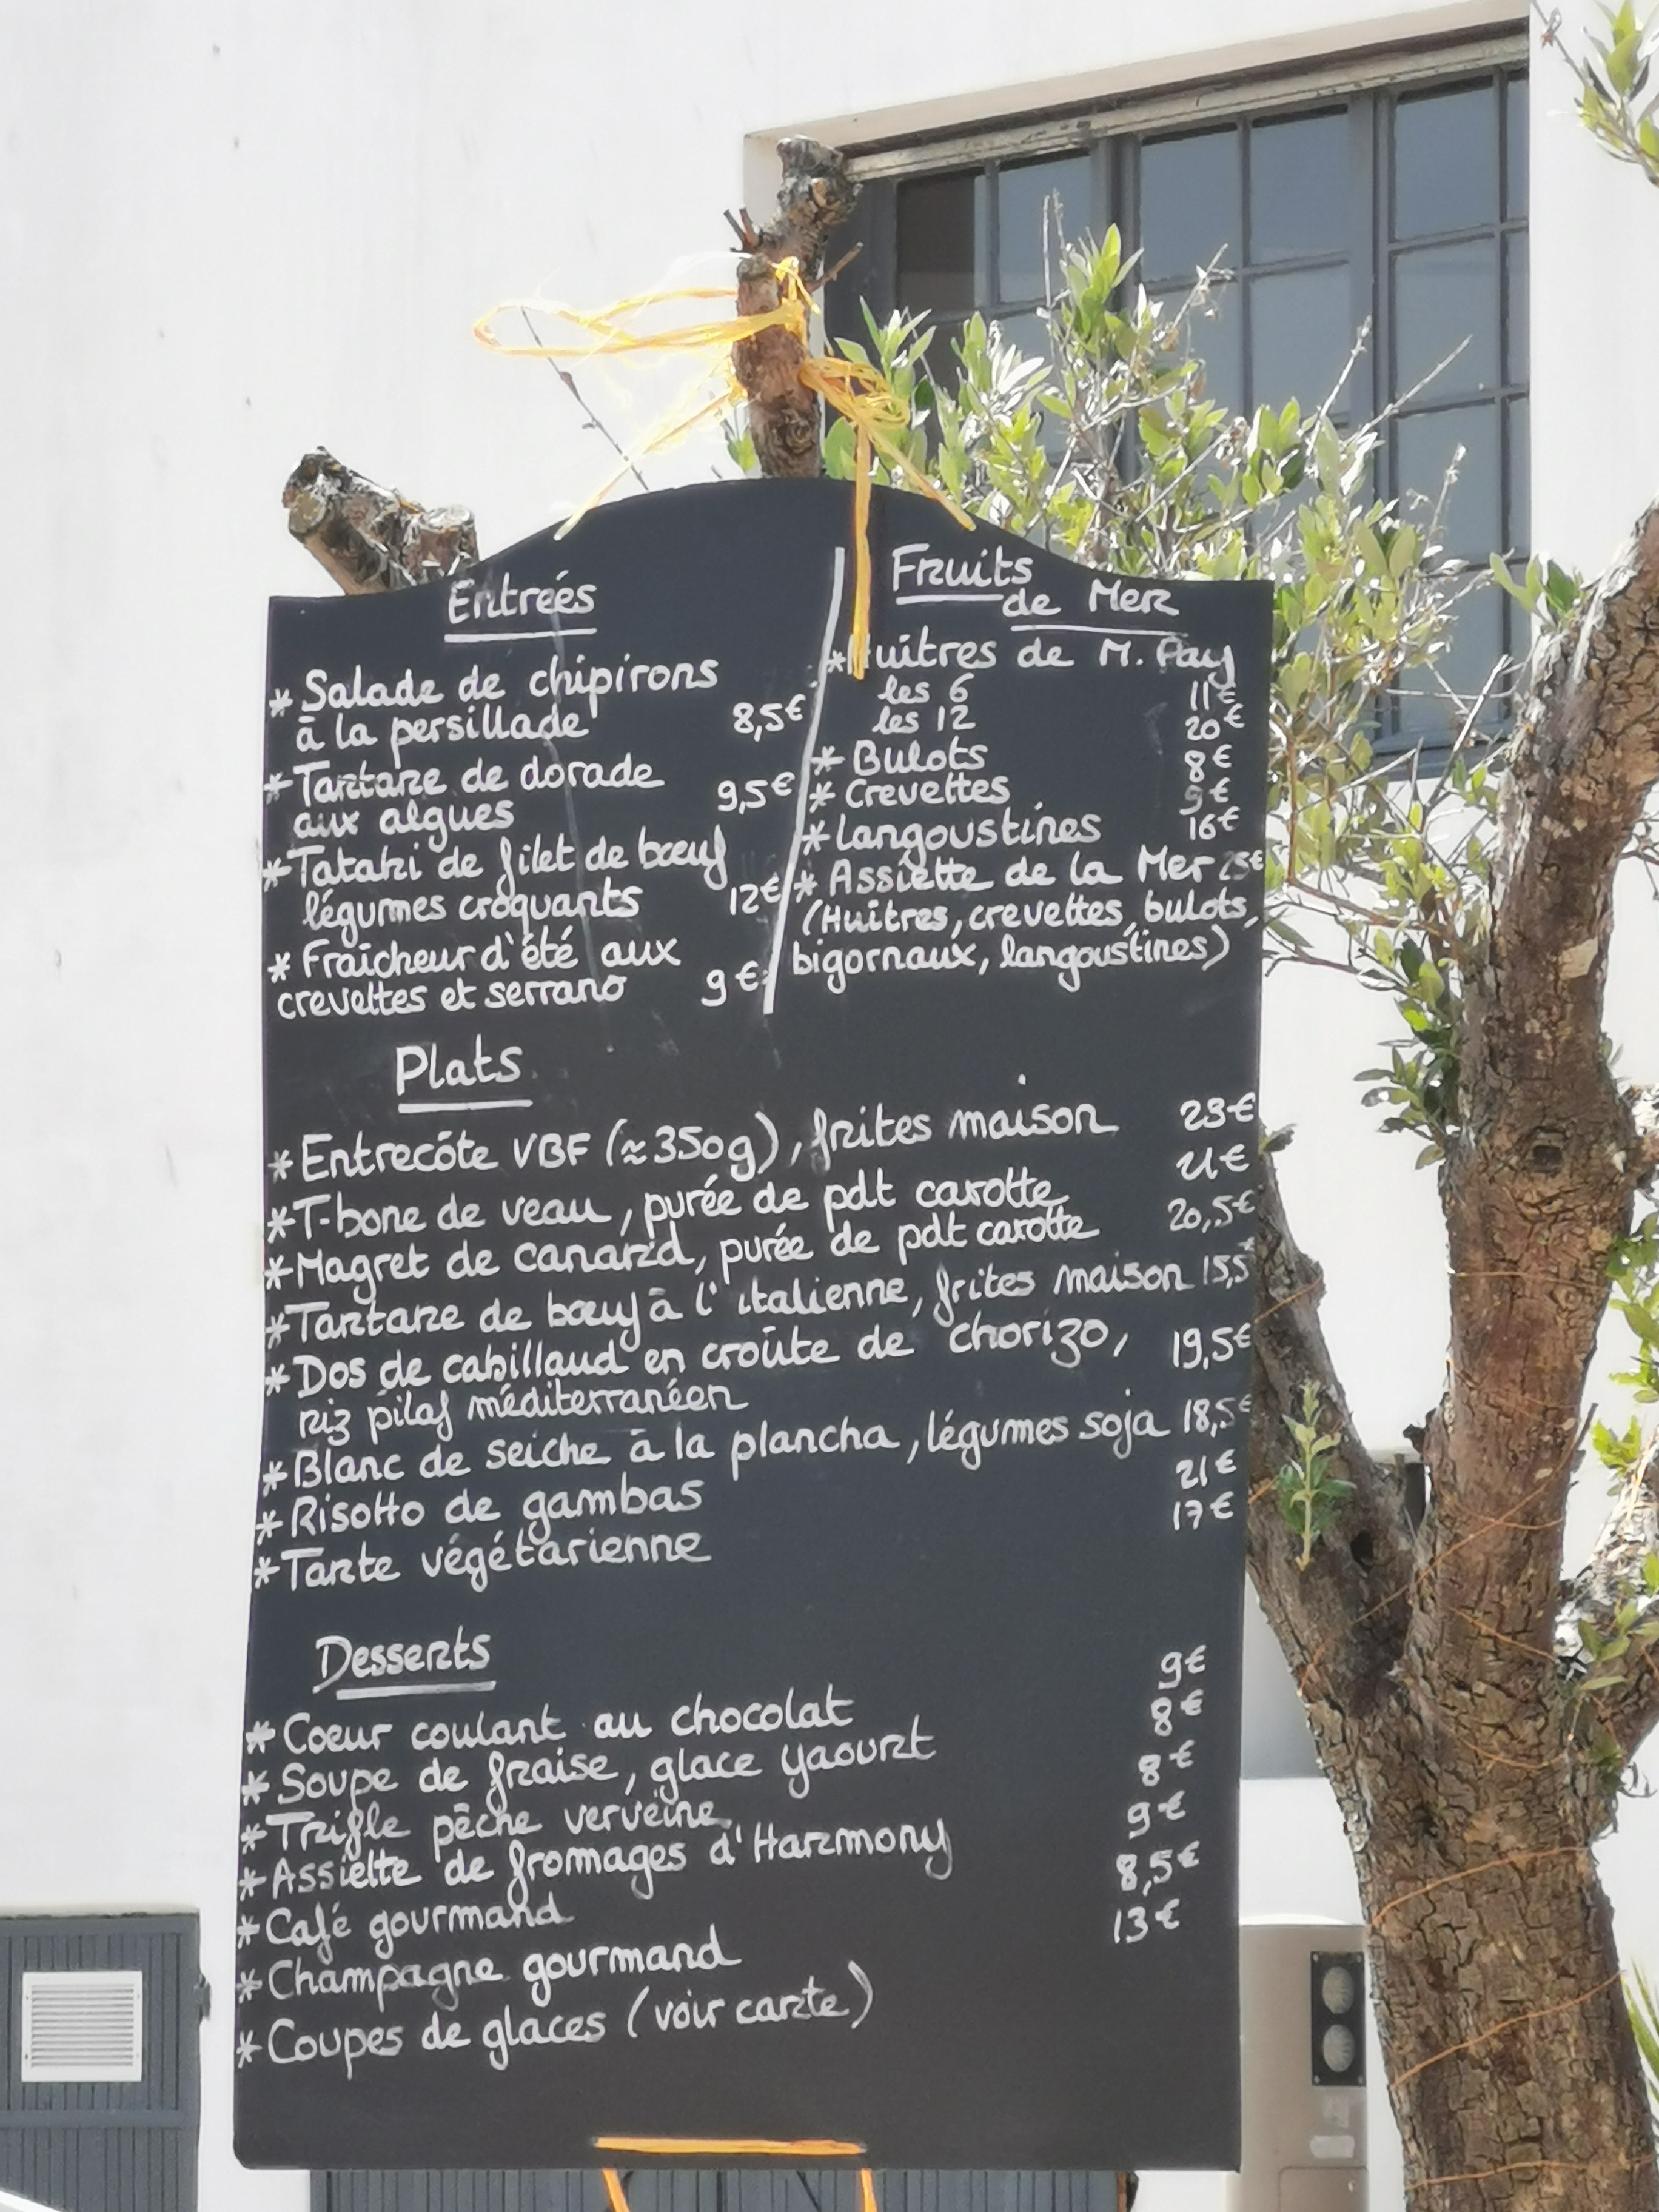 Entrées
* Salade de chipirons
à la persillade 8,5€
* Tartare de dorade
aux algues 9,5€
* Tataki de filet de bœuf
légumes croquants 12€
* Fraîcheur d'été aux
crevettes et serrano 9€
Fruits
de Mer
* Huîtres de M. Pay
les 6 11€
les 12 20€
* Bulots 8€
* Crevettes 9€
* Langoustines 16€
* Assiette de la Mer 25€
(Huîtres, crevettes, bulots,
bigornaux, langoustines)
Plats
* Entrecôte VBF (≈350g), frites maison 23€
* T-bone de veau, purée de pdt carotte 21€
* Magret de canard, purée de pdt carotte 20,5€
* Tartare de bœuf à l'italienne, frites maison 15,5€
* Dos de cabillaud en croûte de chorizo, 19,5€
riz pilaf méditerranéen
* Blanc de seiche à la plancha, légumes soja 18,5€
* Risotto de gambas 21€
* Tarte végétarienne 17€
Desserts
* Coeur coulant au chocolat 9€
* Soupe de fraise, glace yaourt 8€
* Trifle pêche verveine 8€
* Assiette de fromages d'Harmony 9€
* Café gourmand 8,5€
* Champagne gourmand 13€
* Coupes de glaces (voir carte)